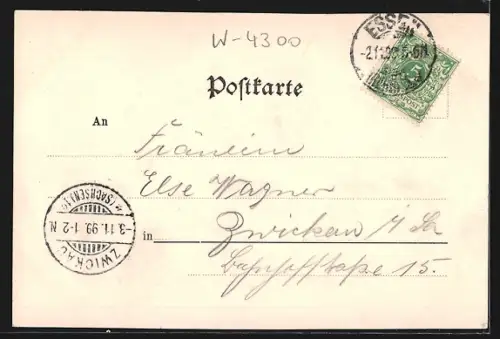 W-4300
ESSEN
-2.11.99. 5-6N
Postkarte
An
Fräulein
Else Wagner
in Zwickau i/Sa
Bahnhofstraße 15.
ZWICKAU
-3.11.99. 1-2 N.
(SACHSEN)